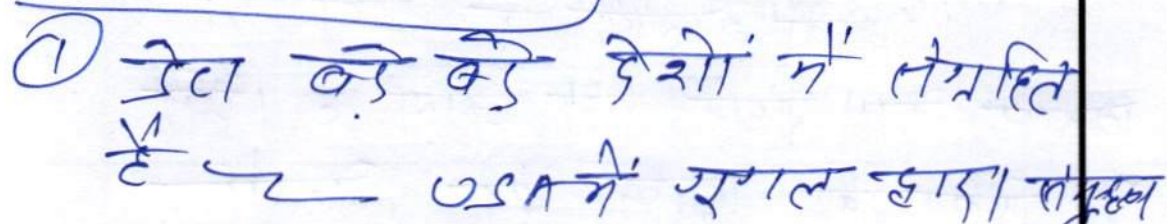 ① डेटा बड़े बड़े देशों में संग्रहित
हैं — USA में गूगल द्वारा संग्रहण